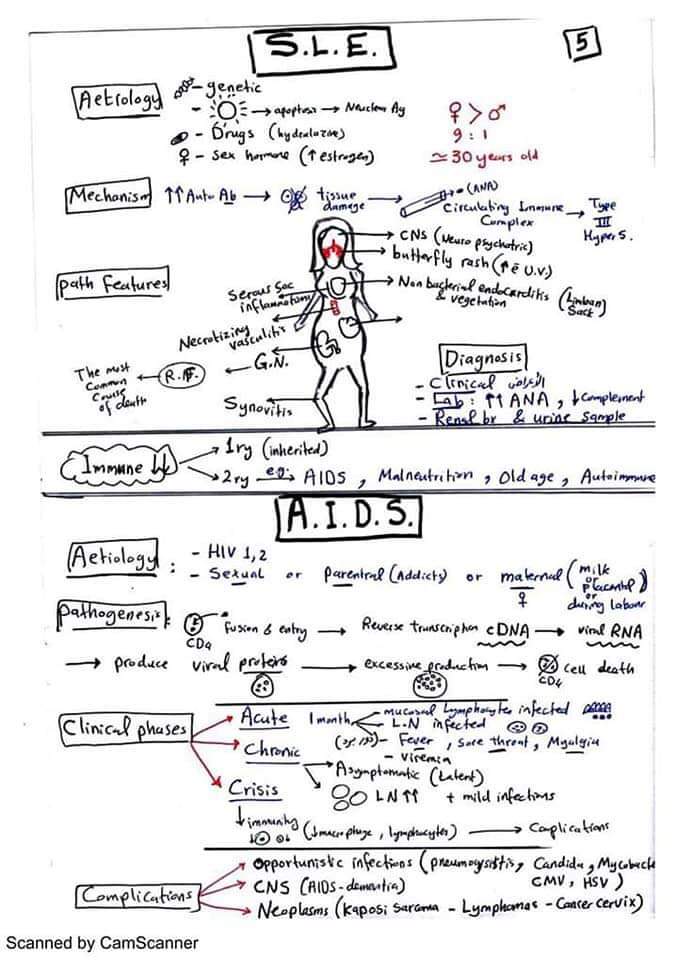 S.L.E.
5
Aetiology
- genetic
- → apoptosis → Nuclear Ag
- Drugs (hydralazine)
♀ - sex hormone (↑ estrogen)
♀ > ♂
9 : 1
≃ 30 years old
Mechanism ↑↑ Auto Ab → tissue damage → (ANA) Circulating Immune Complex → Type III Hyper S.
path features
CNS (Neuro psychatric)
butterfly rash (↑ ē U.V.)
Non bacterial endocarditis & vegetation (Libman Sack)
Serous Sac inflammations
Necrotizing vasculitis
G.N.
R.F.
The most common cause of death
Synovitis
Diagnosis
- Clinical الأعراض
- Lab : ↑↑ ANA , ↓ Complement
- Renal br & urine sample
Immune ↓↓
1ry (inherited)
2ry e.g: AIDS , Malneutrition , Old age , Autoimmune
A.I.D.S.
Aetiology :
- HIV 1,2
- Sexual or Parentral (Addicts) or maternal ♀ (milk or placental or during labour)
Pathogenesis:
CD4 fusion & entry → Reverse transcription cDNA → viral RNA
→ produce viral proteins → excessive production → CD4 cell death
Clinical phases
Acute 1 month
mucosal lymphocytes infected
L.N infected
- Fever , Sore throat , Myalgia
- viremia
Chronic
Asymptomatic (Latent)
LN ↑↑ + mild infections
Crisis
↓ immunity (↓ macrophage , lymphocytes) → Complications
Complications
Opportunistic infections (pneumocystitis, Candida, Mycobacte
CMV , HSV )
CNS (AIDS-dementia)
Neoplasms (Kaposi Sarcoma - Lymphomas - Cancer cervix)
Scanned by CamScanner